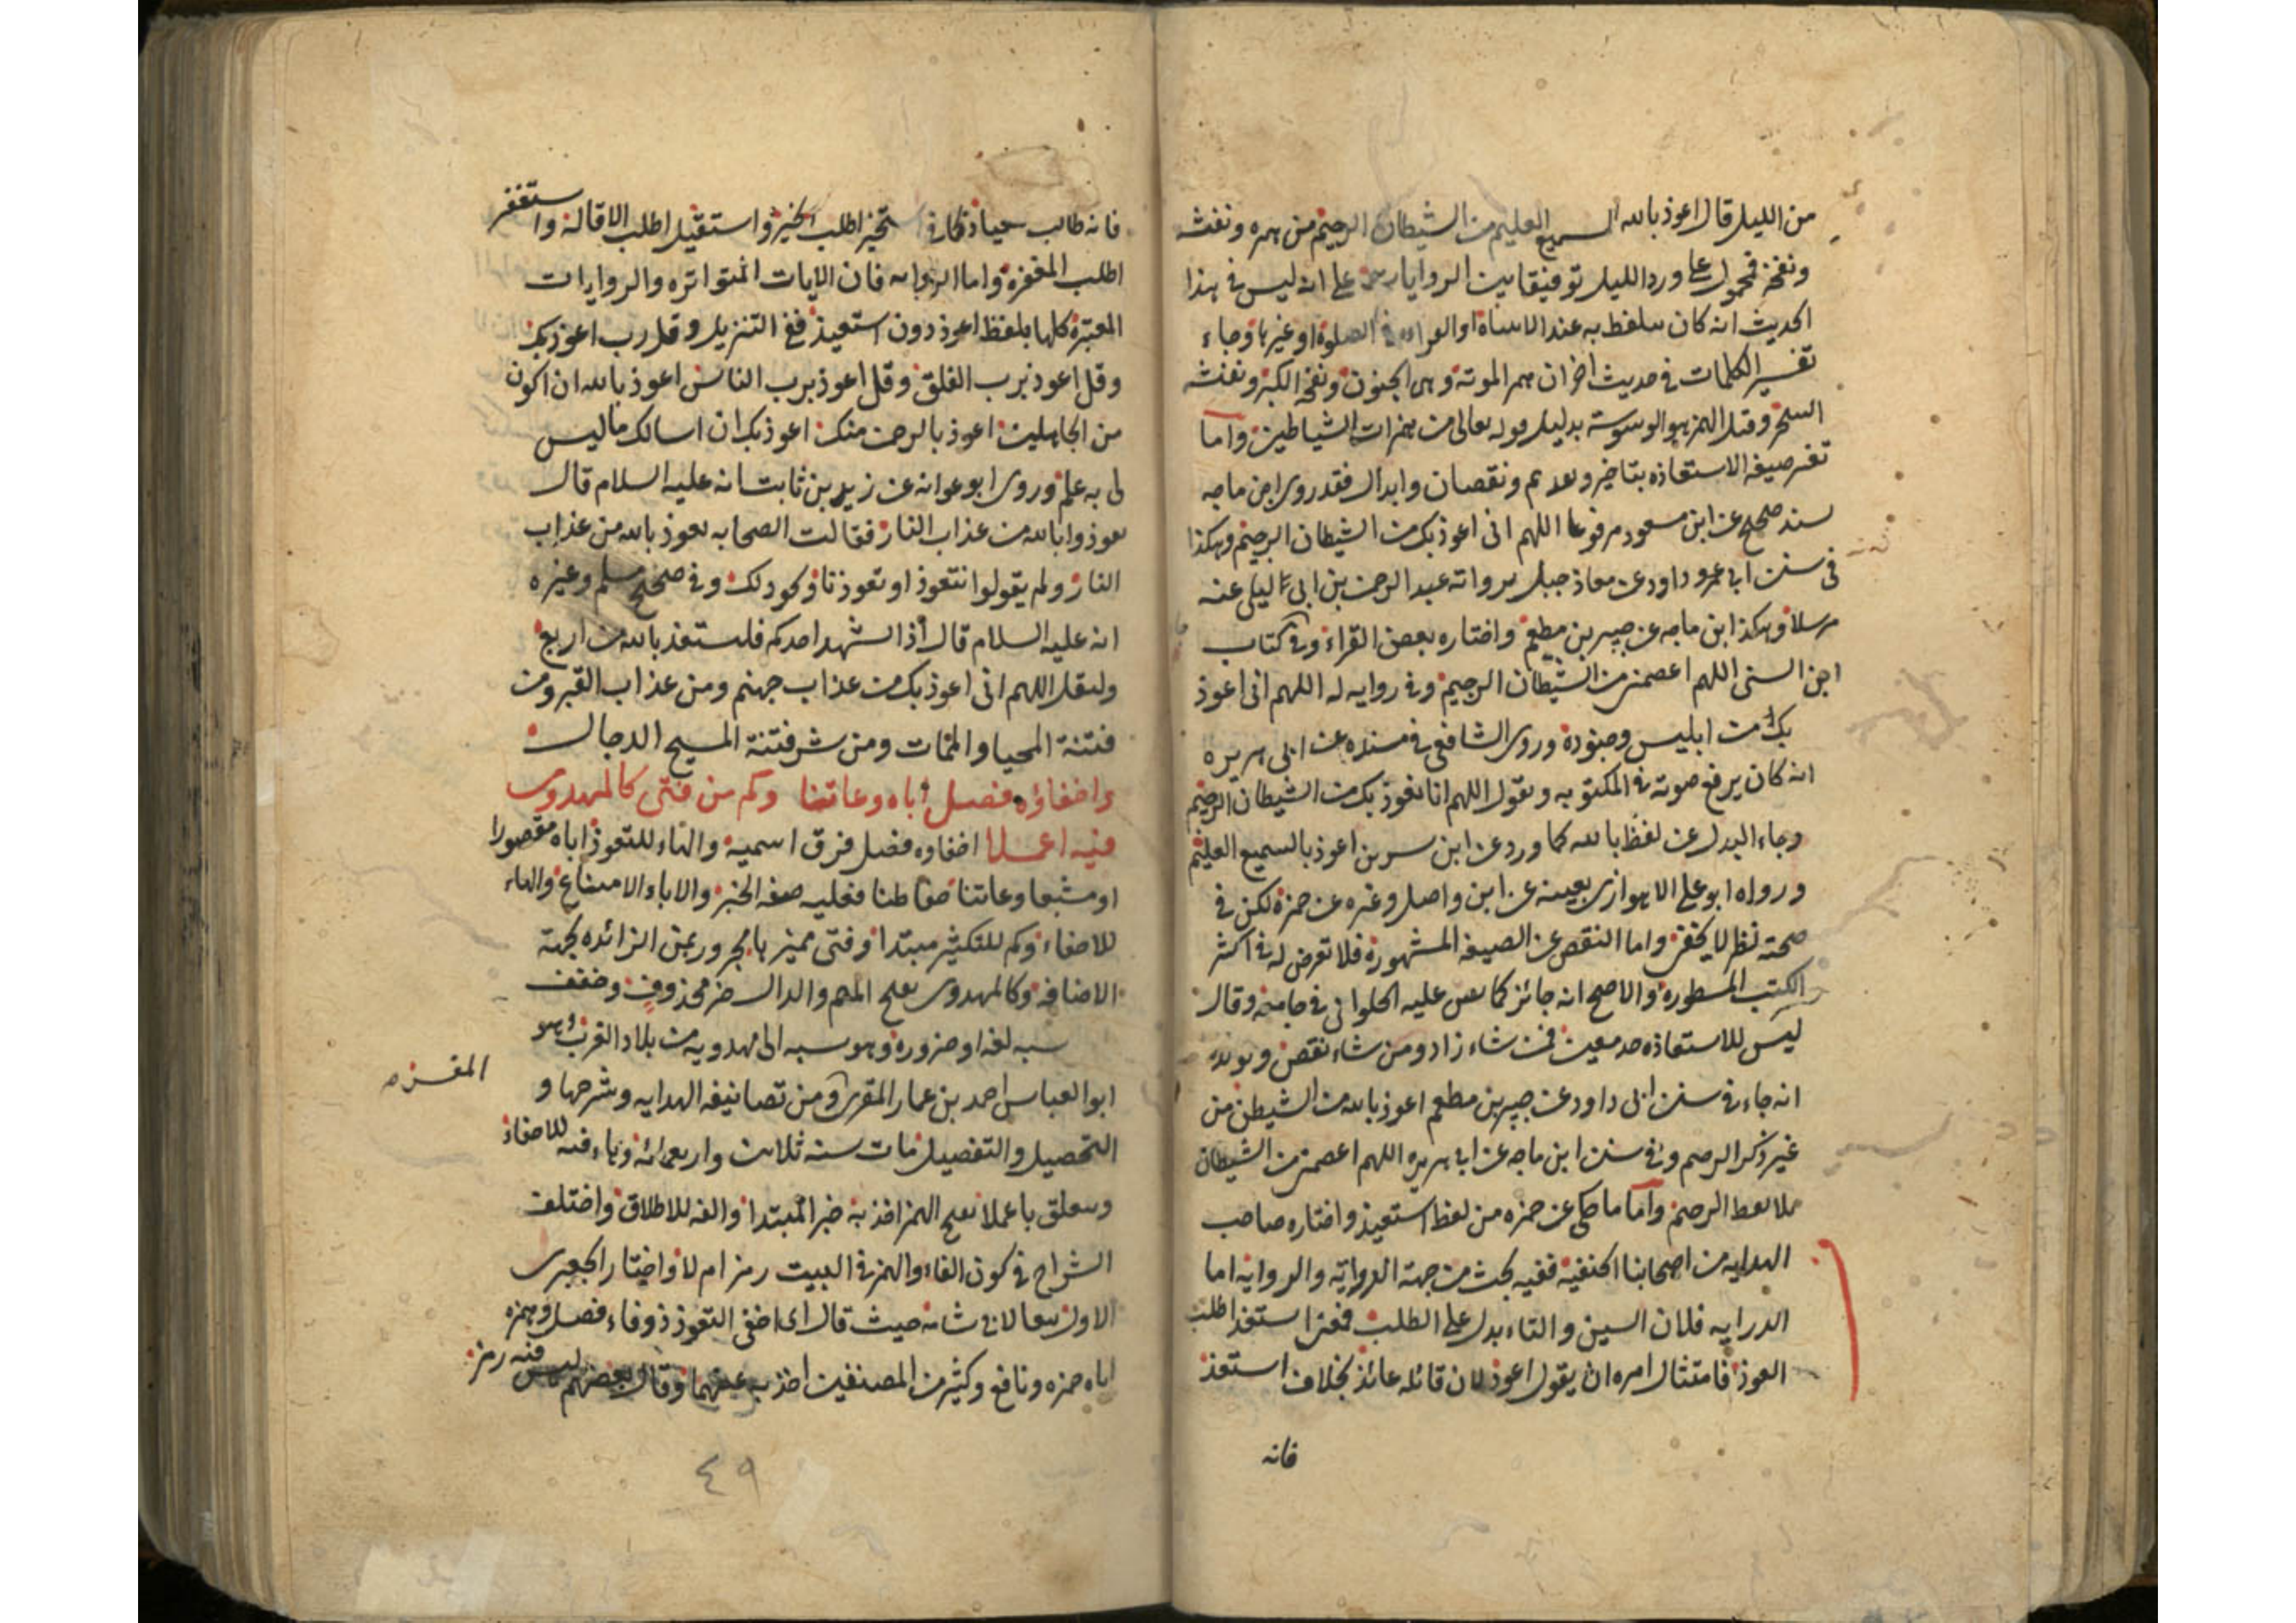 من الليل قال اعوذ بالله السميع العليم من الشيطان الرجيم من همزه ونفثه
ونفخه فمحمول على ورد الليل توفيقا بين الروايات على انه ليس في هذا
الحديث انه كان يتلفظ به عند الاستفتاح او القراءة في الصلوة او غيرها وجاء
تفسير الكلمات في حديث اخر ان همز الموتة وهي الجنون ونفخه الكبر ونفثه
السحر وقيل الهمز هو الوسوسة بدليل قوله تعالى من همزات الشياطين واما
تغير صيغة الاستعاذه بتاخير وتقديم ونقصان وابدال فقد روى ابن ماجه
بسند صحيح عن ابن مسعود مرفوعا اللهم اني اعوذ بك من الشيطان الرجيم وهكذا
في سنن ابي عمرو داود عن معاذ جبل برواته عبد الرحمن بن ابي ليلى عنه
مرسلا وهكذا ابن ماجه عن جبير بن مطعم واختاره بعض القراء وفي كتاب
ابن السني اللهم اعصمني من الشيطان الرجيم وفي روايه له اللهم اني اعوذ
بك من ابليس وجنوده وروى الشافعي في مسنده عن ابي هريره
انه كان يرفع صوته في المكتوبه ويقول اللهم انا نعوذ بك من الشيطان الرجيم
وجاء البدل عن لفظ بالله كما ورد عن ابن سيرين اعوذ بالسميع العليم
ورواه ابو علي الاهوازي بعينه عن ابن واصل وغيره عن حمزة لكن في
صحته نظر لا يخفى واما النقص عن الصيغه المشهورة فلا تعرض له في اكثر
الكتب المسطوره والاصح انه جائز كما نص عليه الحلواني في جامعه وقال
ليس للاستعاذه حد معين فمن شاء زاد ومن شاء نقص ويويده
انه جاء في سنن ابي داود عن جبير بن مطعم اعوذ بالله من الشيطن من
غير ذكر الرجيم وفي سنن ابن ماجه عن ابي هريره اللهم اعصمني من الشيطان
بلا لفظ الرجيم واما ما حكي عن حمزه من لفظ استعيذ واختاره صاحب
الهدايه من اصحابنا الحنفيه ففيه بحث من جهة الدراية والروايه اما
الدرايه فلان السين والتاء يدل على الطلب فمعنى استعذ اطلب
العوذ فامتثال امره ان يقول اعوذ لان قائله عائذ بخلاف استعذ
فانه
فانه طالب عياذ كما في استخير اطلب الخير واستقيل اطلب الاقالة واستغفر
اطلب المغفرة واما الروايه فان الايات المتواتره والروايات
المعتبرة كلها بلفظ اعوذ دون استعيذ ففي التنزيل وقل رب اعوذ بك
وقل اعوذ برب الفلق وقل اعوذ برب الناس اعوذ بالله ان اكون
من الجاهلين اعوذ بالرحمن منك اعوذ بك ان اسالك ما ليس
لي به علم وروى ابو عوانه عن زيد بن ثابت انه عليه السلام قال
تعوذوا بالله من عذاب النار فقالت الصحابه نعوذ بالله من عذاب
النار ولم يقولوا نتعوذ او تعوذنا ونحو ذلك وفي صحيح مسلم وغيره
انه عليه السلام قال اذا تشهد احدكم فليستعذ بالله من اربع
وليقل اللهم اني اعوذ بك من عذاب جهنم ومن عذاب القبر ومن
فتنة المحيا والممات ومن شر فتنة المسيح الدجال
واخفاؤه فصل اباه وعاتنا وكم من فتى كالمهدوي
فيه اعملا اخفاوه فصل فرق اسمية والهاء للتعوذ اباه مقصورا
او مشبعا وعاتنا حفاظنا فعليه صفه الخبر والاباء الامتناع والهاء
للاخفاء وكم للتكثير مبتدا وفتى مميزها مجرور بمن الزائده لجهة
الاضافه وكالمهدوي بفتح الميم والدال خبر محذوف وخفف
نسبه لغه او ضروره وهو نسبه الى مهدويه من بلاد الغرب وهو
ابو العباس احمد بن عمار المقرى ومن تصانيفه الهدايه وشرحها و
المقرى
التحصيل والتفصيل مات سنه ثلاث واربعمائه وهاء فيه للاخفاء
ويتعلق باعملا بفتح الهمز اخذ به خبر المبتدا والفه للاطلاق واختلف
الشراح في كون الفاء والهمز في البيت رمز ام لا واختار الجعبري
الاول تبعا لابي شامه حيث قال اي اخفى التعوذ ذو فاء فصل وهمزه
اباه حمزه ونافع وكثير من المصنفين اخذ به عنهما وقال بعضهم ليس فيه رمز
٤٩